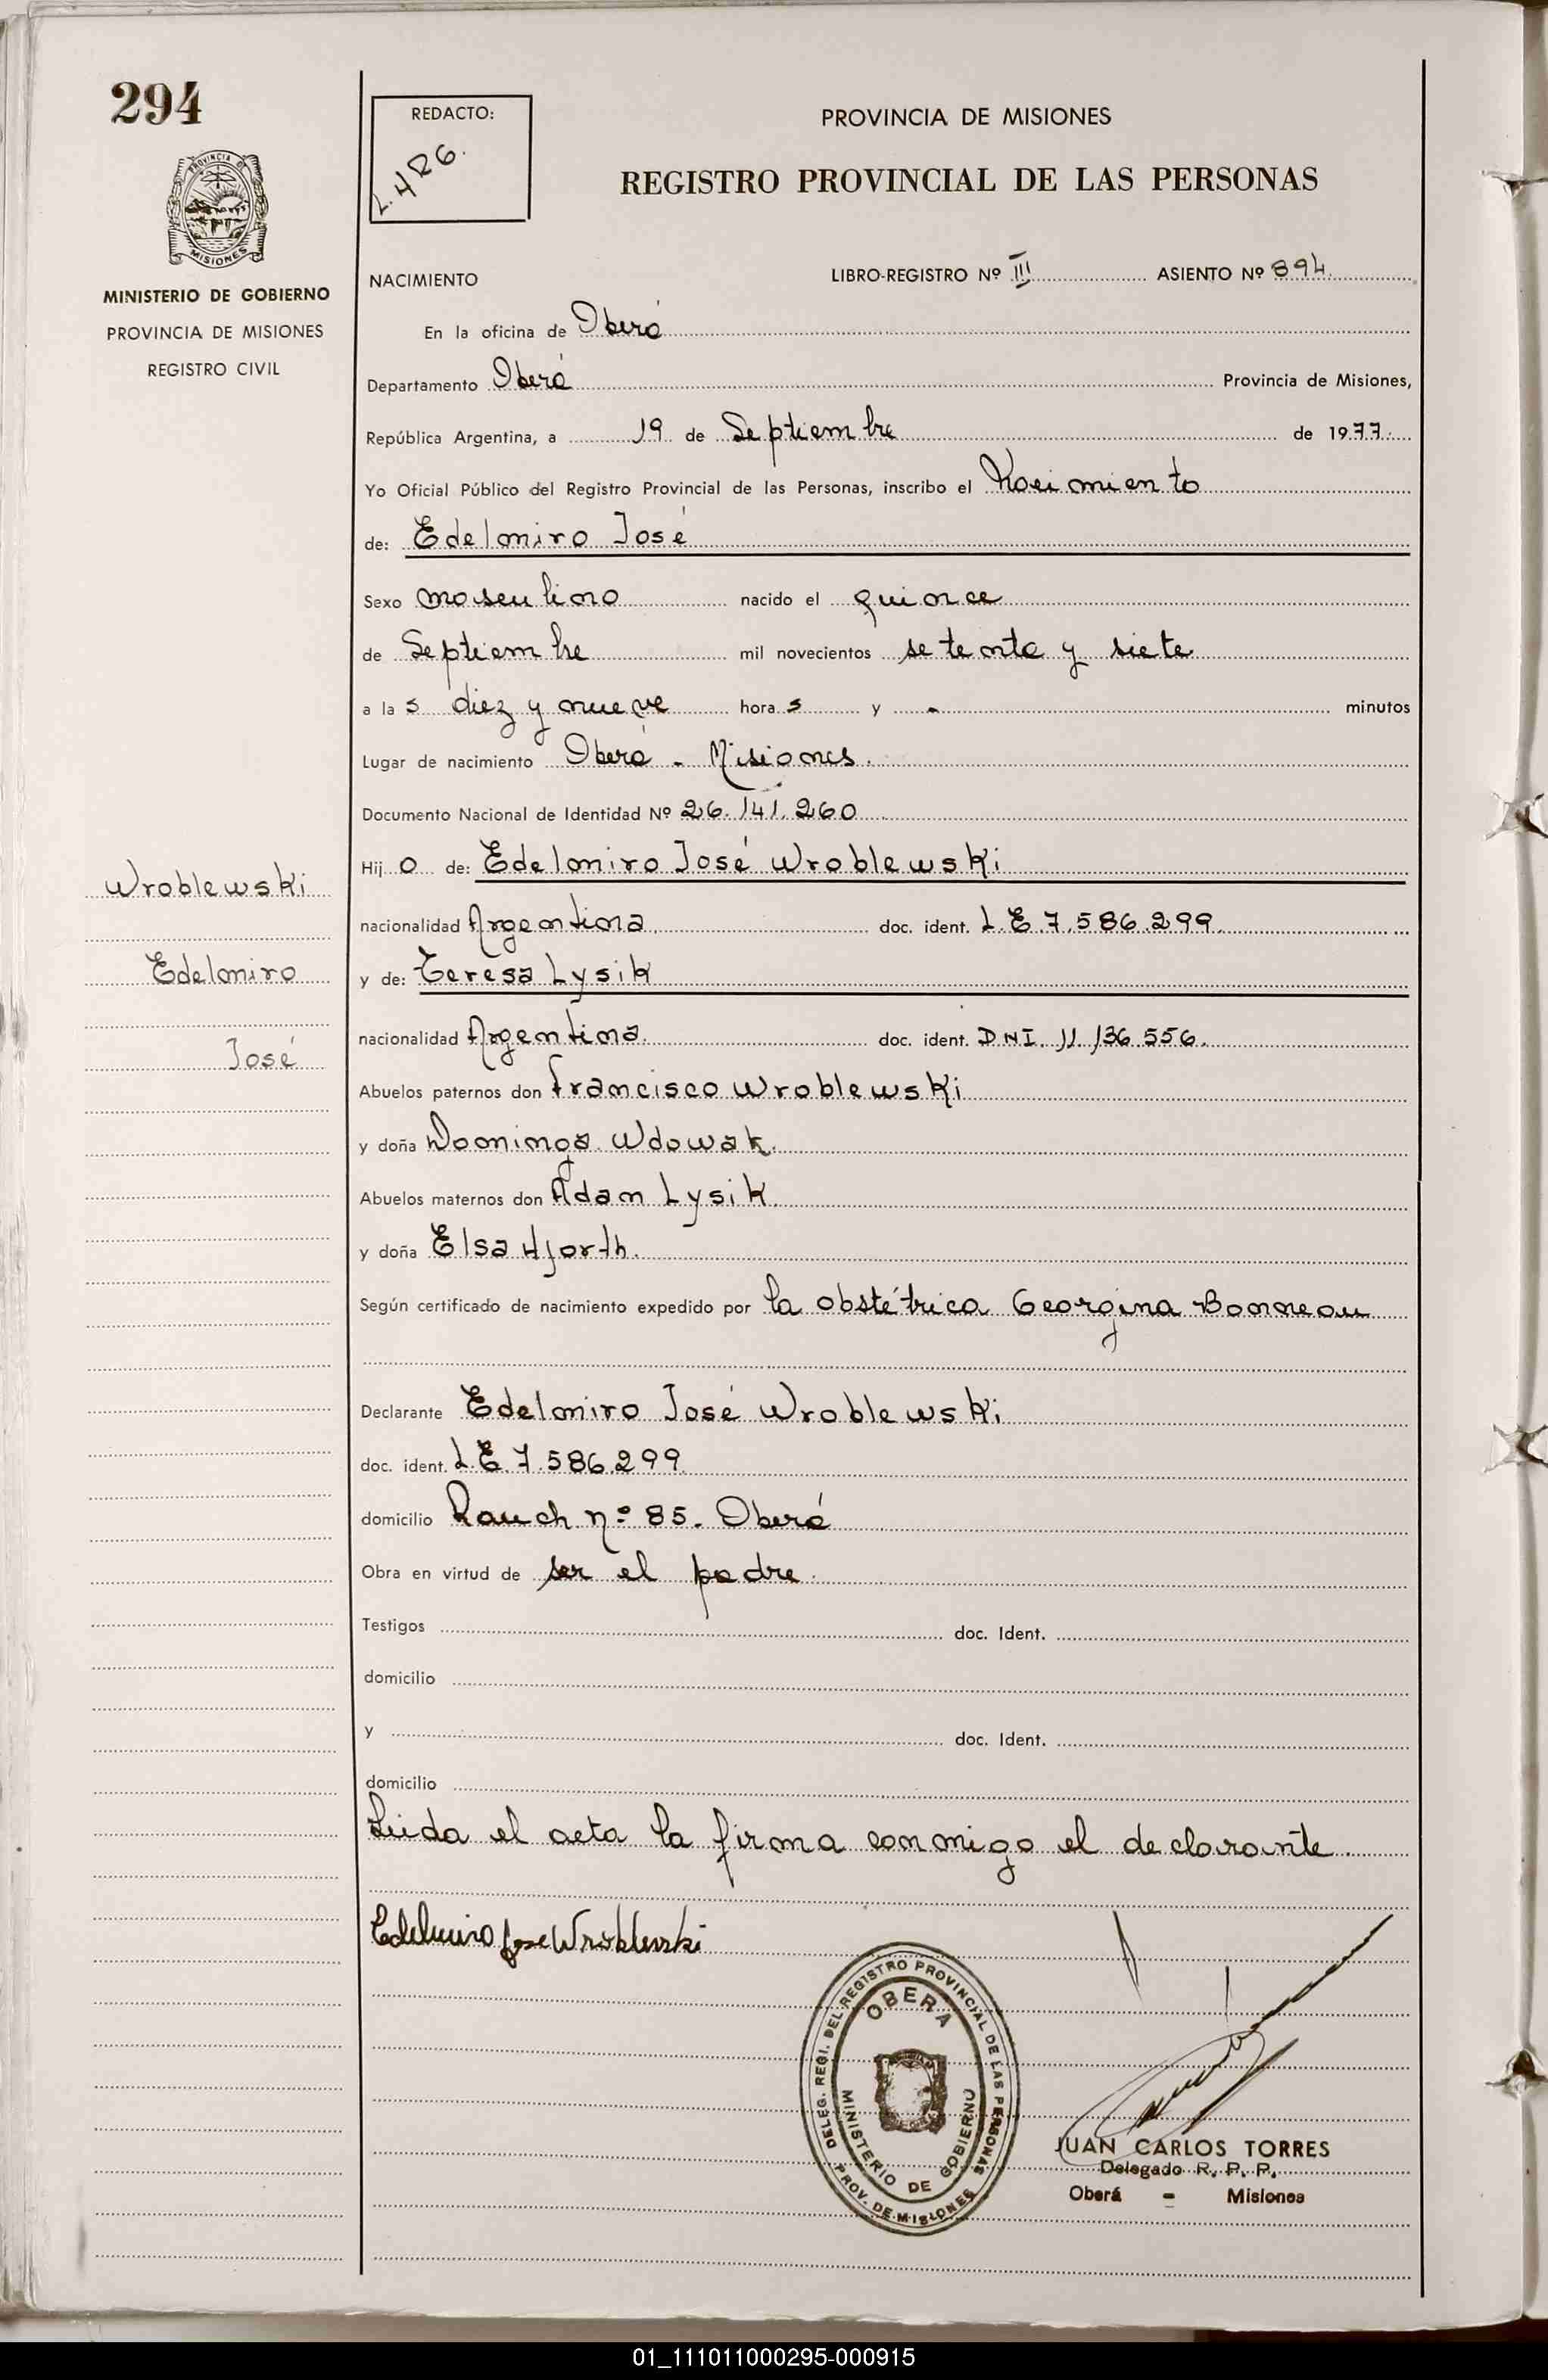 294
PROVINCIA DE MISIONES
MINISTERIO DE GOBIERNO
PROVINCIA DE MISIONES
REGISTRO CIVIL
Wroblewski
Edelmiro
José
REDACTO:
PROVINCIA DE MISIONES
REGISTRO PROVINCIAL DE LAS PERSONAS
NACIMIENTO LIBRO-REGISTRO Nº III ASIENTO Nº 894
En la oficina de Oberá
Departamento Oberá Provincia de Misiones,
República Argentina, a 19 de Septiembre de 1977.
Yo Oficial Público del Registro Provincial de las Personas, inscribo el Nacimiento
de: Edelmiro José
Sexo masculino nacido el quince
de Septiembre mil novecientos setenta y siete
a la s diez y nueve hora s y - minutos
Lugar de nacimiento Oberá - Misiones.
Documento Nacional de Identidad Nº 26.141.260
Hij o de: Edelmiro José Wroblewski
nacionalidad Argentina doc. ident. L.E.7.586.299.
y de: Teresa Lysik
nacionalidad Argentina. doc. ident. DNI. 11.136.556.
Abuelos paternos don Francisco Wroblewski
y doña Dominga Wdowak.
Abuelos maternos don Adam Lysik.
y doña Elsa Hjorth.
Según certificado de nacimiento expedido por la obstétrica Georgina Bonneau
Declarante Edelmiro José Wroblewski
doc. ident. L.E. 7.586.299
domicilio Rauch nº 85. Oberá
Obra en virtud de ser el padre.
Testigos doc. Ident.
domicilio
y doc. Ident.
domicilio
Leida el acta la firma conmigo el declarante.
Edelmiro Jose Wroblewski
DELEG. REGI. DEL REGISTRO PROVINCIAL DE LAS PERSONAS
OBERA
MINISTERIO DE GOBIERNO
PROV. DE MISIONES
JUAN CARLOS TORRES
Delegado R. P. P.
Oberá - Misiones
01_111011000295-000915